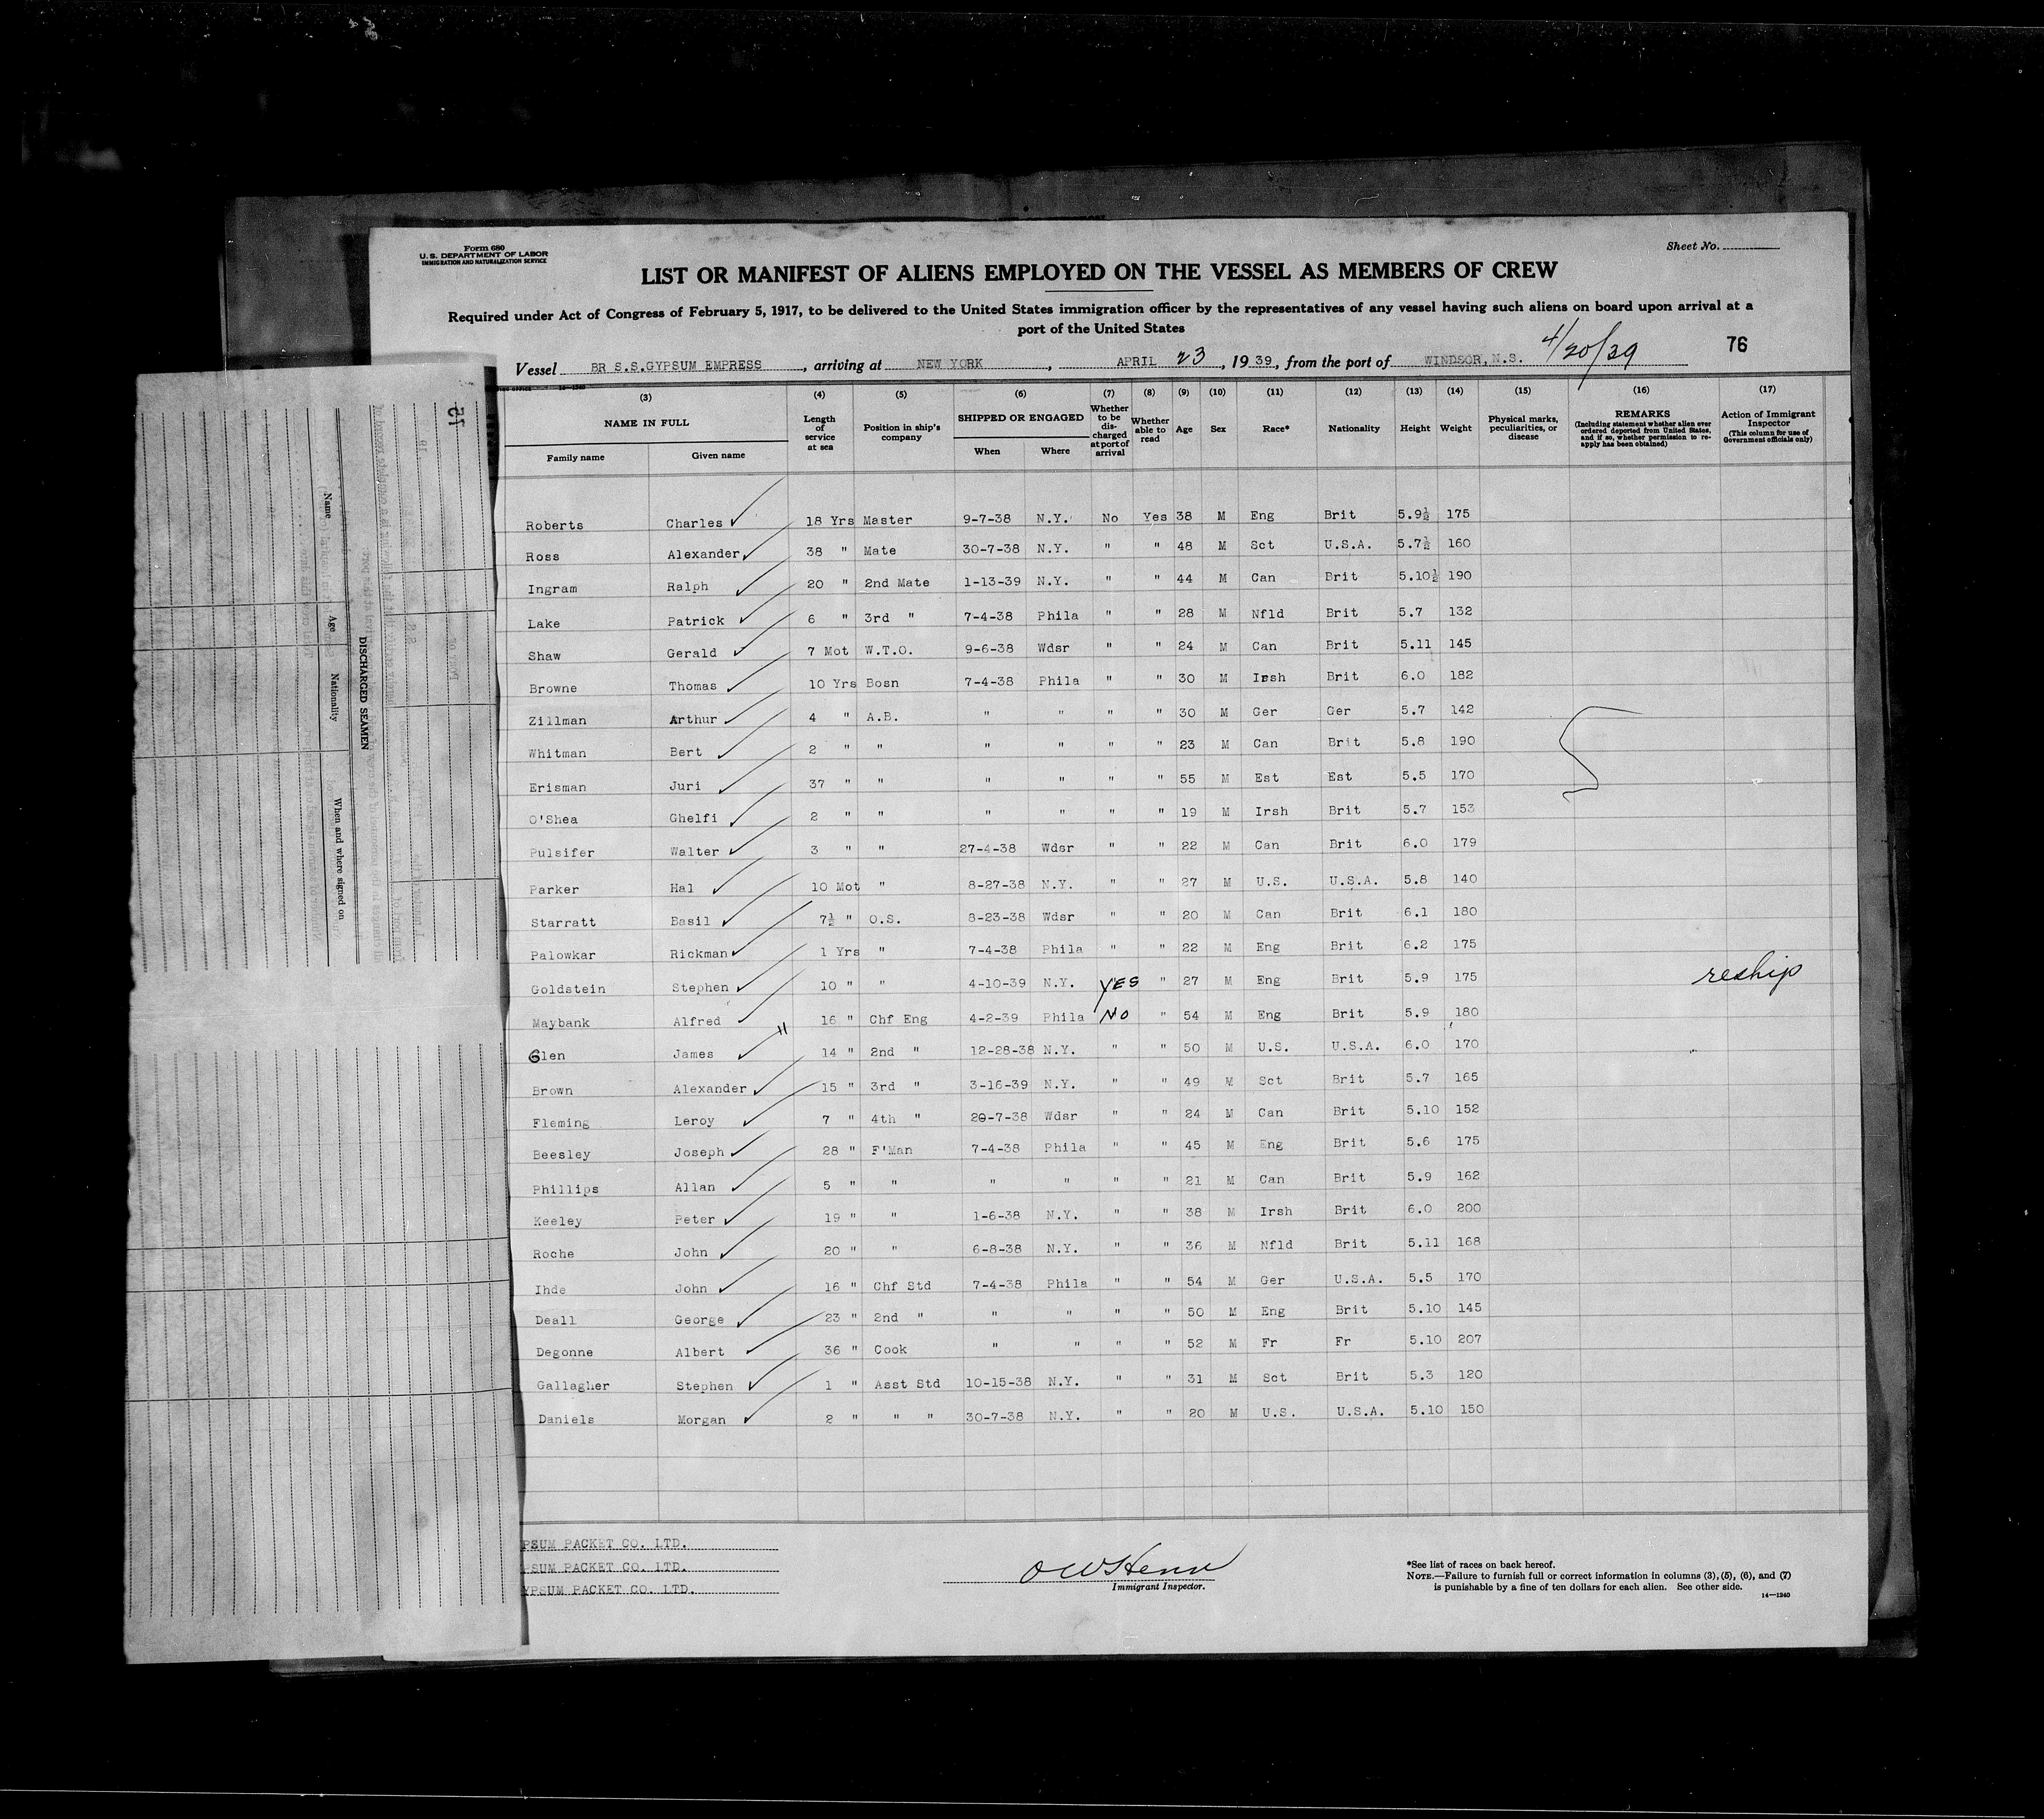 Form 680
U.S. DEPARTMENT OF LABOR
IMMIGRATION AND NATURALIZATION SERVICE
Sheet No.
LIST OR MANIFEST OF ALIENS EMPLOYED ON THE VESSEL AS MEMBERS OF CREW
Required under Act of Congress of February 5, 1917, to be delivered to the United States immigration officer by the representatives of any vessel having such aliens on board upon arrival at a
port of the United States
76
Vessel BR S.S.GYPSUM EMPRESS, arriving at NEW YORK, APRIL 23, 1939, from the port of WINDSOR, N.S. 4/20/39
(3) (4) (5) (6) (7) (8) (9) (10) (11) (12) (13) (14) (15) (16) (17)
NAME IN FULL
Family name Given name
Length of service at sea
Position in ship's company
SHIPPED OR ENGAGED
When Where
Whether to be discharged at port of arrival
Whether able to read
Age Sex Race* Nationality Height Weight
Physical marks, peculiarities, or disease
REMARKS
(Including statement whether alien ever ordered deported from United States, and if so, whether permission to reapply has been obtained)
Action of Immigrant Inspector
(This column for use of Government officials only)
Roberts Charles 18 Yrs Master 9-7-38 N.Y. No Yes 38 M Eng Brit 5.9½ 175
Ross Alexander 38 " Mate 30-7-38 N.Y. " " 48 M Sct U.S.A. 5.7½ 160
Ingram Ralph 20 " 2nd Mate 1-13-39 N.Y. " " 44 M Can Brit 5.10½ 190
Lake Patrick 6 " 3rd " 7-4-38 Phila " " 28 M Nfld Brit 5.7 132
Shaw Gerald 7 Mot W.T.O. 9-6-38 Wdsr " " 24 M Can Brit 5.11 145
Browne Thomas 10 Yrs Bosn 7-4-38 Phila " " 30 M Irsh Brit 6.0 182
Zillman Arthur 4 " A.B. " " " " 30 M Ger Ger 5.7 142
Whitman Bert 2 " " " " " " 23 M Can Brit 5.8 190
Erisman Juri 37 " " " " " " 55 M Est Est 5.5 170
O'Shea Ghelfi 2 " " " " " " 19 M Irsh Brit 5.7 153
Pulsifer Walter 3 " " 27-4-38 Wdsr " " 22 M Can Brit 6.0 179
Parker Hal 10 Mot " 8-27-38 N.Y. " " 27 M U.S. U.S.A. 5.8 140
Starratt Basil 7½ " O.S. 8-23-38 Wdsr " " 20 M Can Brit 6.1 180
Palowkar Rickman 1 Yrs " 7-4-38 Phila " " 22 M Eng Brit 6.2 175
Goldstein Stephen 10 " " 4-10-39 N.Y. YES " 27 M Eng Brit 5.9 175 reship
Maybank Alfred 16 " Chf Eng 4-2-39 Phila NO " 54 M Eng Brit 5.9 180
Glen James 14 " 2nd " 12-28-38 N.Y. " " 50 M U.S. U.S.A. 6.0 170
Brown Alexander 15 " 3rd " 3-16-39 N.Y. " " 49 M Sct Brit 5.7 165
Fleming Leroy 7 " 4th " 20-7-38 Wdsr " " 24 M Can Brit 5.10 152
Beesley Joseph 28 " F'Man 7-4-38 Phila " " 45 M Eng Brit 5.6 175
Phillips Allan 5 " " " " " " 21 M Can Brit 5.9 162
Keeley Peter 19 " " 1-6-38 N.Y. " " 38 M Irsh Brit 6.0 200
Roche John 20 " " 6-8-38 N.Y. " " 36 M Nfld Brit 5.11 168
Ihde John 16 " Chf Std 7-4-38 Phila " " 54 M Ger U.S.A. 5.5 170
Deall George 23 " 2nd " " " " " 50 M Eng Brit 5.10 145
Degonne Albert 36 " Cook " " " " 52 M Fr Fr 5.10 207
Gallagher Stephen 1 " Asst Std 10-15-38 N.Y. " " 31 M Sct Brit 5.3 120
Daniels Morgan 2 " " " 30-7-38 N.Y. " " 20 M U.S. U.S.A. 5.10 150
PSUM PACKET CO. LTD.
PSUM PACKET CO. LTD.
YPSUM PACKET CO. LTD.
Immigrant Inspector.
*See list of races on back hereof.
NOTE.—Failure to furnish full or correct information in columns (3), (5), (6), and (7)
is punishable by a fine of ten dollars for each alien. See other side.
14—1240
75
DISCHARGED SEAMEN
Name Age Nationality When and where signed on